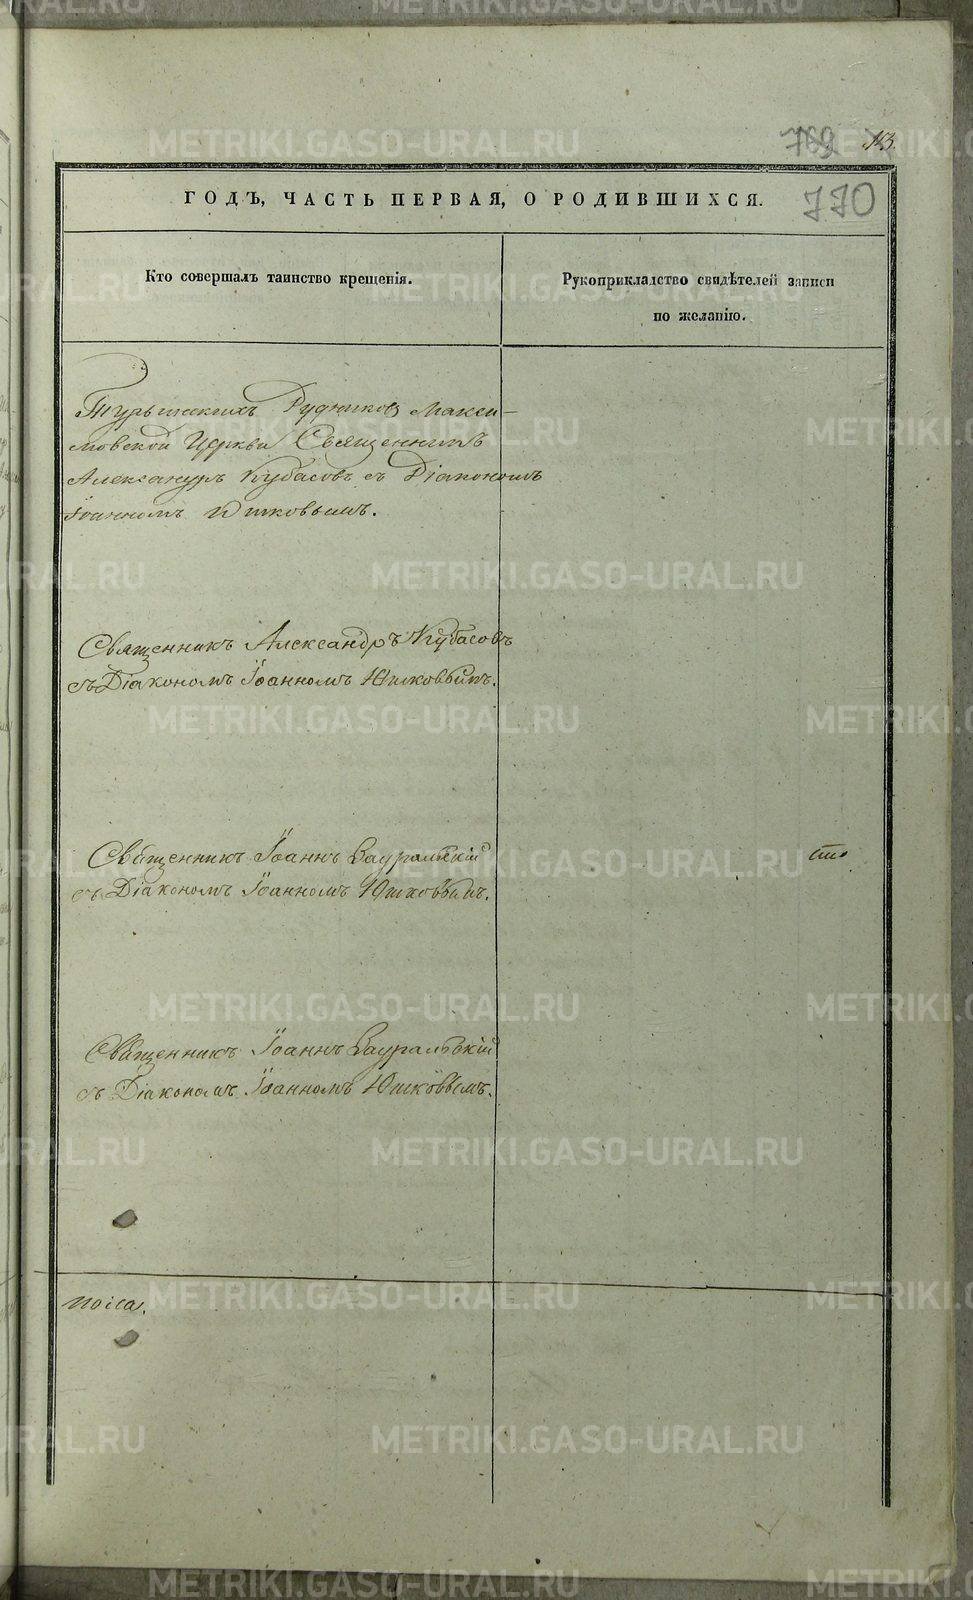 769
770
ГОДЪ, ЧАСТЬ ПЕРВАЯ, О РОДИВШИХСЯ.
Кто совершалъ таинство крещенія.
Рукоприкладство свидѣтелей записи
по желанію.
Турьинскихъ Рудниковъ Макси-
мовской Церкви Священникъ
Александръ Кубасовъ съ Діакономъ
Іоанномъ Юшковымъ.
Священникъ Александръ Кубасовъ
съ Діакономъ Іоанномъ Юшковымъ.
Священникъ Іоаннъ Зауральскій
съ Діакономъ Іоанномъ Юшковымъ.
Священникъ Іоаннъ Зауральскій
съ Діакономъ Іоанномъ Юшковымъ.
METRIKI.GASO-URAL.RU